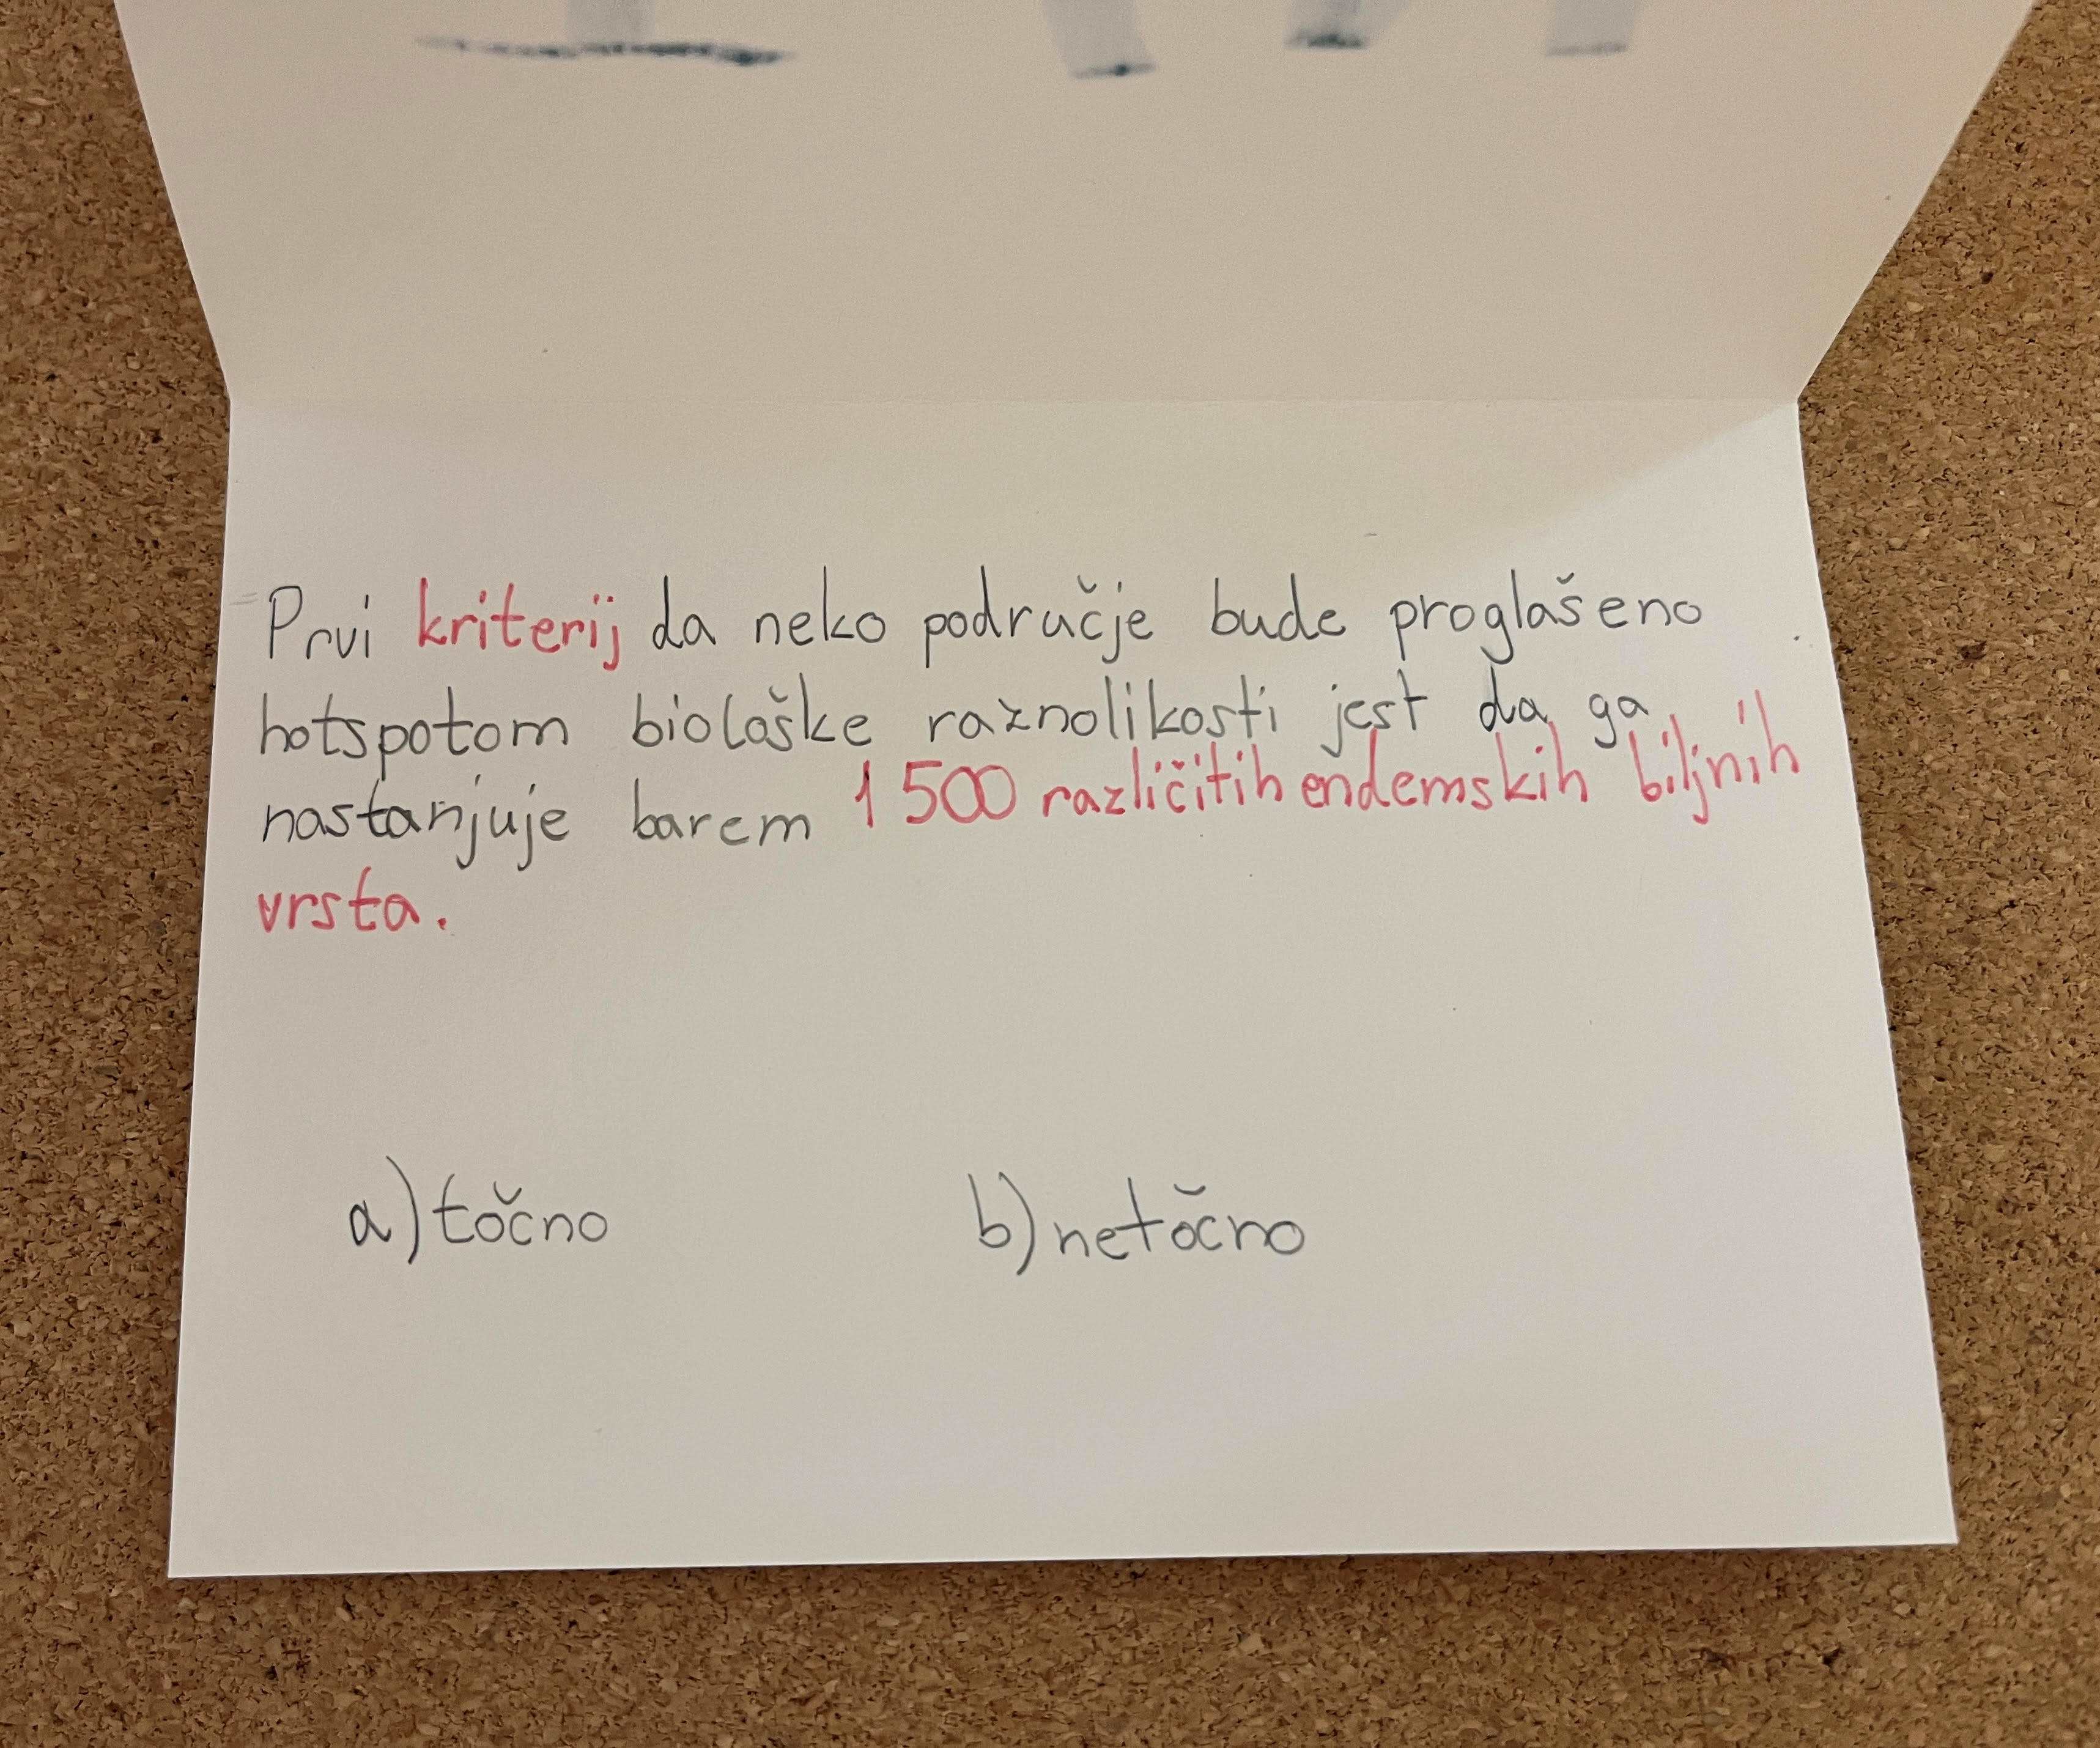 Prvi kriterij da neko područje bude proglašeno
hotspotom biološke raznolikosti jest da ga
nastanjuje barem 1 500 različitih endemskih biljnih
vrsta.
a) točno b) netočno